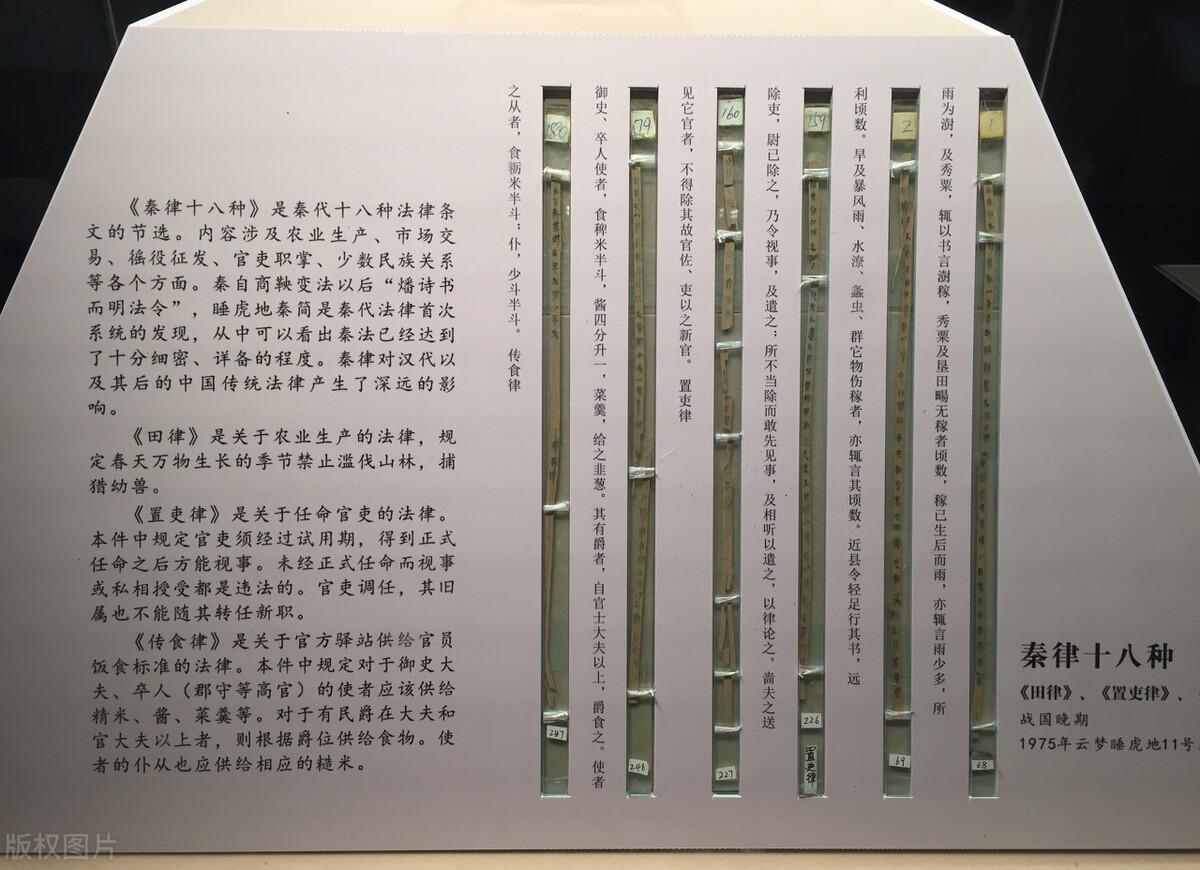 《秦律十八种》是秦代十八种法律条
文的节选。内容涉及农业生产、市场交
易、徭役征发、官吏职掌、少数民族关系
等各个方面。秦自商鞅变法以后“燔诗书
而明法令”，睡虎地秦简是秦代法律首次
系统的发现，从中可以看出秦法已经达到
了十分细密、详备的程度。秦律对汉代以
及其后的中国传统法律产生了深远的影
响。
《田律》是关于农业生产的法律，规
定春天万物生长的季节禁止滥伐山林，捕
猎幼兽。
《置吏律》是关于任命官吏的法律。
本件中规定官吏须经过试用期，得到正式
任命之后方能视事。未经正式任命而视事
或私相授受都是违法的。官吏调任，其旧
属也不能随其转任新职。
《传食律》是关于官方驿站供给官员
饭食标准的法律。本件中规定对于御史大
夫、卒人（郡守等高官）的使者应该供给
精米、酱、菜羹等。对于有民爵在大夫和
官大夫以上者，则根据爵位供给食物。使
者的仆从也应供给相应的糙米。
雨为澍，及秀粟，辄以书言澍稼，秀粟及垦田畼无稼者顷数，稼已生后而雨，亦辄言雨少多，所
利顷数。旱及暴风雨、水潦、螽虫、群它物伤稼者，亦辄言其顷数。近县令轻足行其书，远
除吏，尉已除之，乃令视事，及遣之；所不当除而敢先见事，及相听以遣之，以律论之。啬夫之送
见它官者，不得除其故官佐、吏以之新官。 置吏律
御史、卒人使者，食稗米半斗，酱四分升一，菜羹，给之韭葱。其有爵者，自官士大夫以上，爵食之。使者
之从者，食粝米半斗；仆，少斗半斗。 传食律
1
68
2
69
159
226
置吏律
160
227
179
246
180
247
秦律十八种
《田律》、《置吏律》、
战国晚期
1975年云梦睡虎地11号
版权图片